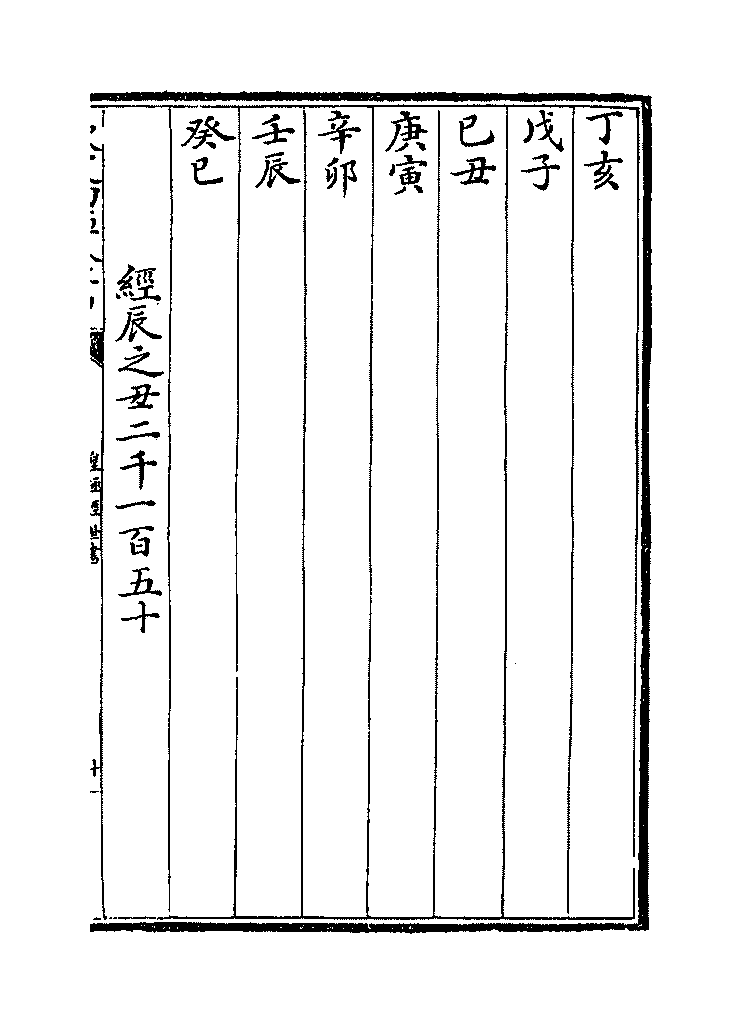 丁亥
戊子
己丑
庚寅
辛卯
壬辰
癸巳
經辰之丑二千一百五十
皇極經世書